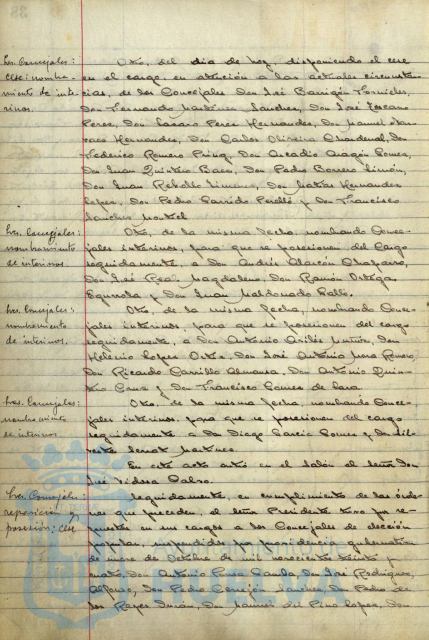 Sres. Concejales:
cese: nombra-
miento de inte-
rinos.
Otro, del dia de hoy, disponiendo el cese
en el cargo, en atención a las actuales circunstan-
cias, de los Concejales Don José Barrigón Fornieles,
Don Fernando Martínez Sanchez, Don José Toscano
Perez, Don Lazaro Perez Hernandez, Don Manuel
Hernandez, Don Carlos Oliveira Chardenal, Don
Federico Romero Don Arcadio Aragón Gomez,
Don Juan Quintero Baez, Don Pedro Borrero Limón,
Don Juan Rebollo Jimenez, Don Matías Hernandez
Lopez, Don Pedro Garrido Perelló y Don Francisco
Sanchez
Sres. Concejales:
nombramiento
de interinos.
Otro, de la misma fecha, nombrando Conce-
jales interinos, para que se posesionen del cargo
seguidamente, a Don Andrés Alarcón Chaparro,
Don José Real Magdaleno, Don Ramón Ortega
Ezquerra y Don Juan Maldonado Gallo.
Sres. Concejales:
nombramiento
de interinos.
Otro, de la misma fecha, nombrando Conce-
jales interinos, para que se posesionen del cargo
seguidamente, a Don Antonio Avilés Muñoz, Don
Helenio Lopez Ortiz, Don José Antonio Mora Romero,
Don Ricardo Carrillo Almansa, Don Antonio Quin-
tero Cruz y Don Francisco Gomez de Lara.
Sres. Concejales:
nombramiento
de interinos.
Otro, de la misma fecha, nombrando Conce-
jales interinos, para que se posesionen del cargo
seguidamente, a Don Diego García Gomez y Don Sil-
vestre Martinez.
En este acto entró en el Salón el señor Don
José Calvo.
Sres. Concejales:
reposición y
posesión: cese
Seguidamente, en cumplimiento de las órde-
nes que preceden, el señor Presidente tuvo por re-
puestos en sus cargos a los Concejales de elección
popular, suspendidos por providencia gubernativa
de nueve de Octubre de mil novecientos treinta y
cuatro, Don Antonio Don José Rodriguez
Alfonso, Don Pedro Cerrejón Sanchez, Don Pedro de
los Reyes Durán, Don Manuel del Pino Lopez, Don